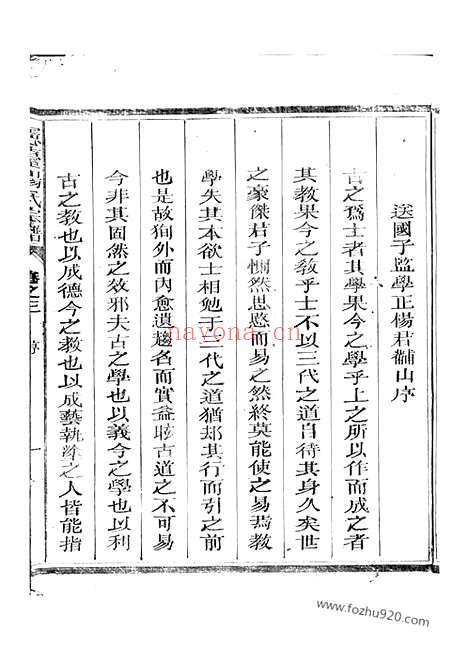 送國子監學正楊君黼山序
古之爲士者其學果今之學乎上之所以作而成之者
其教果今之教乎士不以三代之道自待其身久矣世
之豪傑君子惻然思愍而易之然終莫能使之易焉教
學失其本欲士相勉于三代之道猶却其行而引之前
也是故狥外而內愈遺趨名而實益眩古道之不可易
今非其固然之效邪夫古之學也以義今之學也以利
古之教也以成德今之教也以成藝執塗之人皆能指
卷之三
序
nayona.cn
www.fozhu920.com